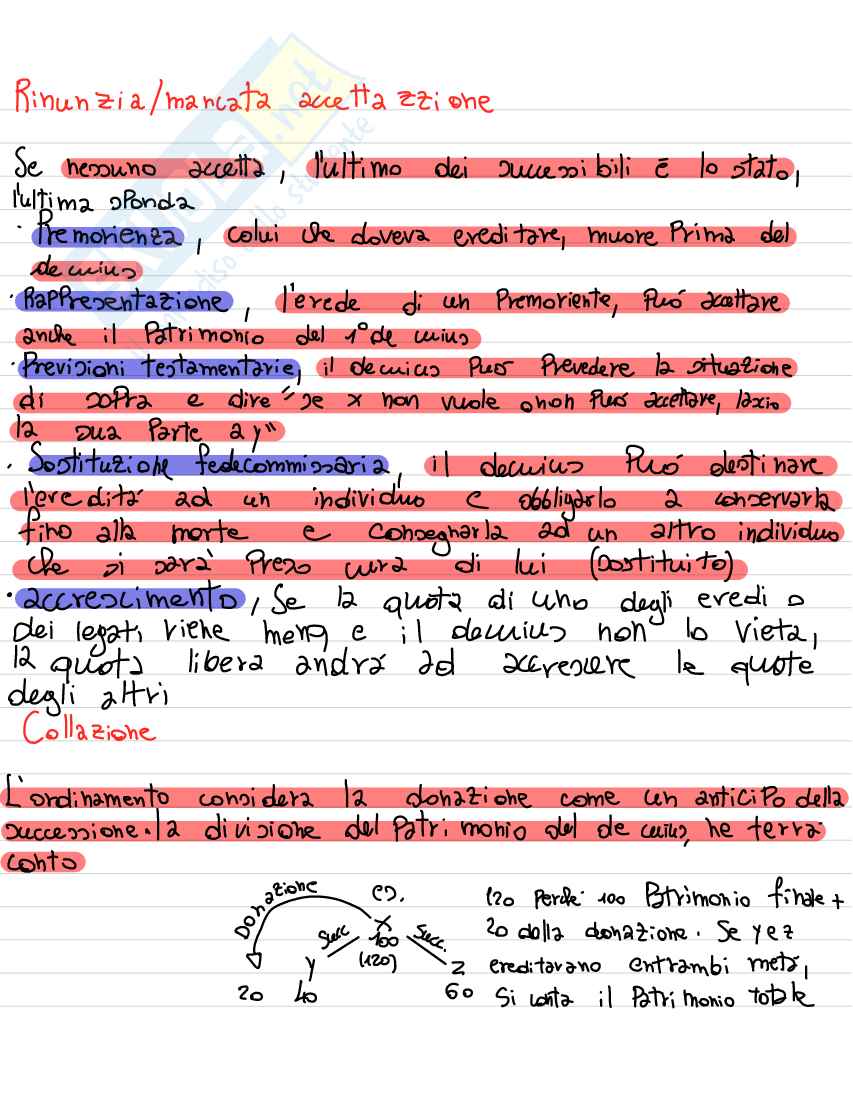 Rinunzia/mancata accettazzione
Se nessuno accetta, l'ultimo dei successibili è lo stato,
l'ultima sponda
· Premorienza, colui che doveva ereditare, muore Prima del
de cuius
· Rappresentazione, l'erede di un Premoriente, Può accettare
anche il Patrimonio del 1° de cuius
· Previsioni testamentarie, il de cuius Può Prevedere la situazione
di sopra e dire "se x non vuole o non Può accettare, lascio
la sua Parte a y"
· Sostituzione fedecommissaria, il de cuius Può destinare
l'eredità ad un individuo e obbligarlo a conservarla
fino alla morte e consegnarla ad un altro individuo
che si sarà Preso cura di lui (sostituito)
· accrescimento, Se la quota di uno degli eredi o
dei legati viene meno e il de cuius non lo vieta,
la quota libera andrà ad accrescere le quote
degli altri
Collazione
L'ordinamento considera la donazione come un anticipo della
successione. la divisione del Patrimonio del de cuius, ne terrà
conto
Donazione
es.
x
100
(120)
Succ
Succ.
y
z
20
40
60
120 perchè 100 Patrimonio finale +
20 dalla donazione. Se y e z
ereditavano entrambi metà,
Si conta il Patrimonio totale
SKUOLA.net